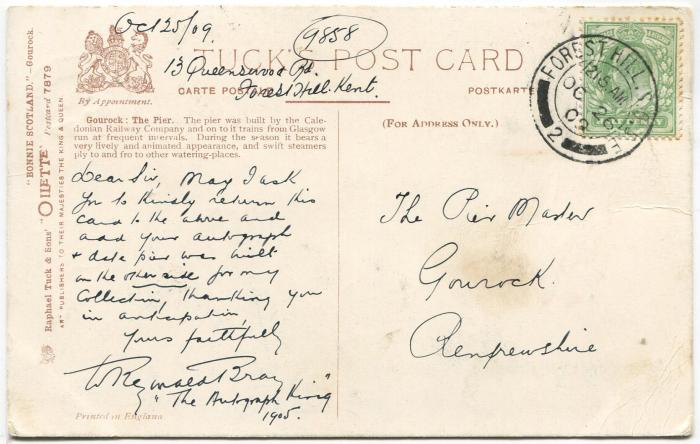 Oct 25/09.
9858
TUCK'S POST CARD
13 Queenswood Rd.
Forest Hill. Kent.
CARTE POSTALE
POSTKARTE
By Appointment.
(FOR ADDRESS ONLY.)
Gourock: The Pier. The pier was built by the Cale-
donian Railway Company and on to it trains from Glasgow
run at frequent intervals. During the season it bears a
very lively and animated appearance, and swift steamers
ply to and fro to other watering-places.
"BONNIE SCOTLAND."—Gourock.
Raphael Tuck & Sons' "OILETTE" Postcard 7879
ART PUBLISHERS TO THEIR MAJESTIES THE KING & QUEEN
Dear Sir, May I ask
you to kindly return this
card to the above and
add your autograph
& date pier was built
on the other side for my
collection, thanking you
in anticipation,
Yours faithfully
W Reginald Bray
"The Autograph King"
1905.
Printed in England
The Pier Master
Gourock.
Renfrewshire
FOREST HILL
OC 26
2